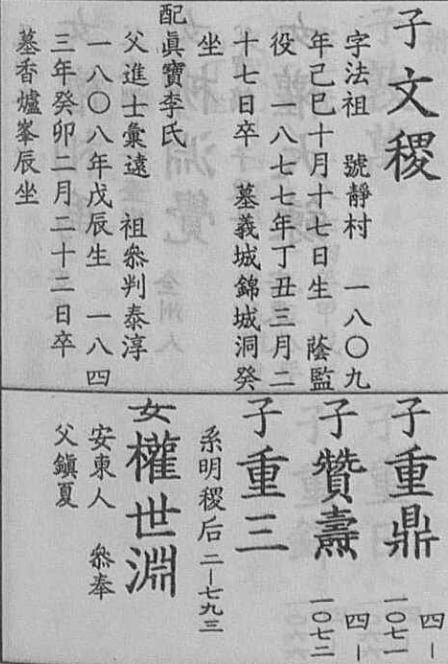 子 文稷
字法祖 號靜村 一八〇九
年己巳十月十七日生 蔭監
役 一八七七年丁丑三月二
十七日卒 墓義城錦城洞癸
坐
配眞寶李氏
父進士彙遠 祖叅判泰淳
一八〇八年戊辰生 一八四
三年癸卯二月二十二日卒
墓香爐峯辰坐
子 重鼎 四-一〇七一
子 贊壽 四-一〇七二
子 重三
系明稷后 二-七九三
女 權世淵
安東人 叅奉
父鎭夏